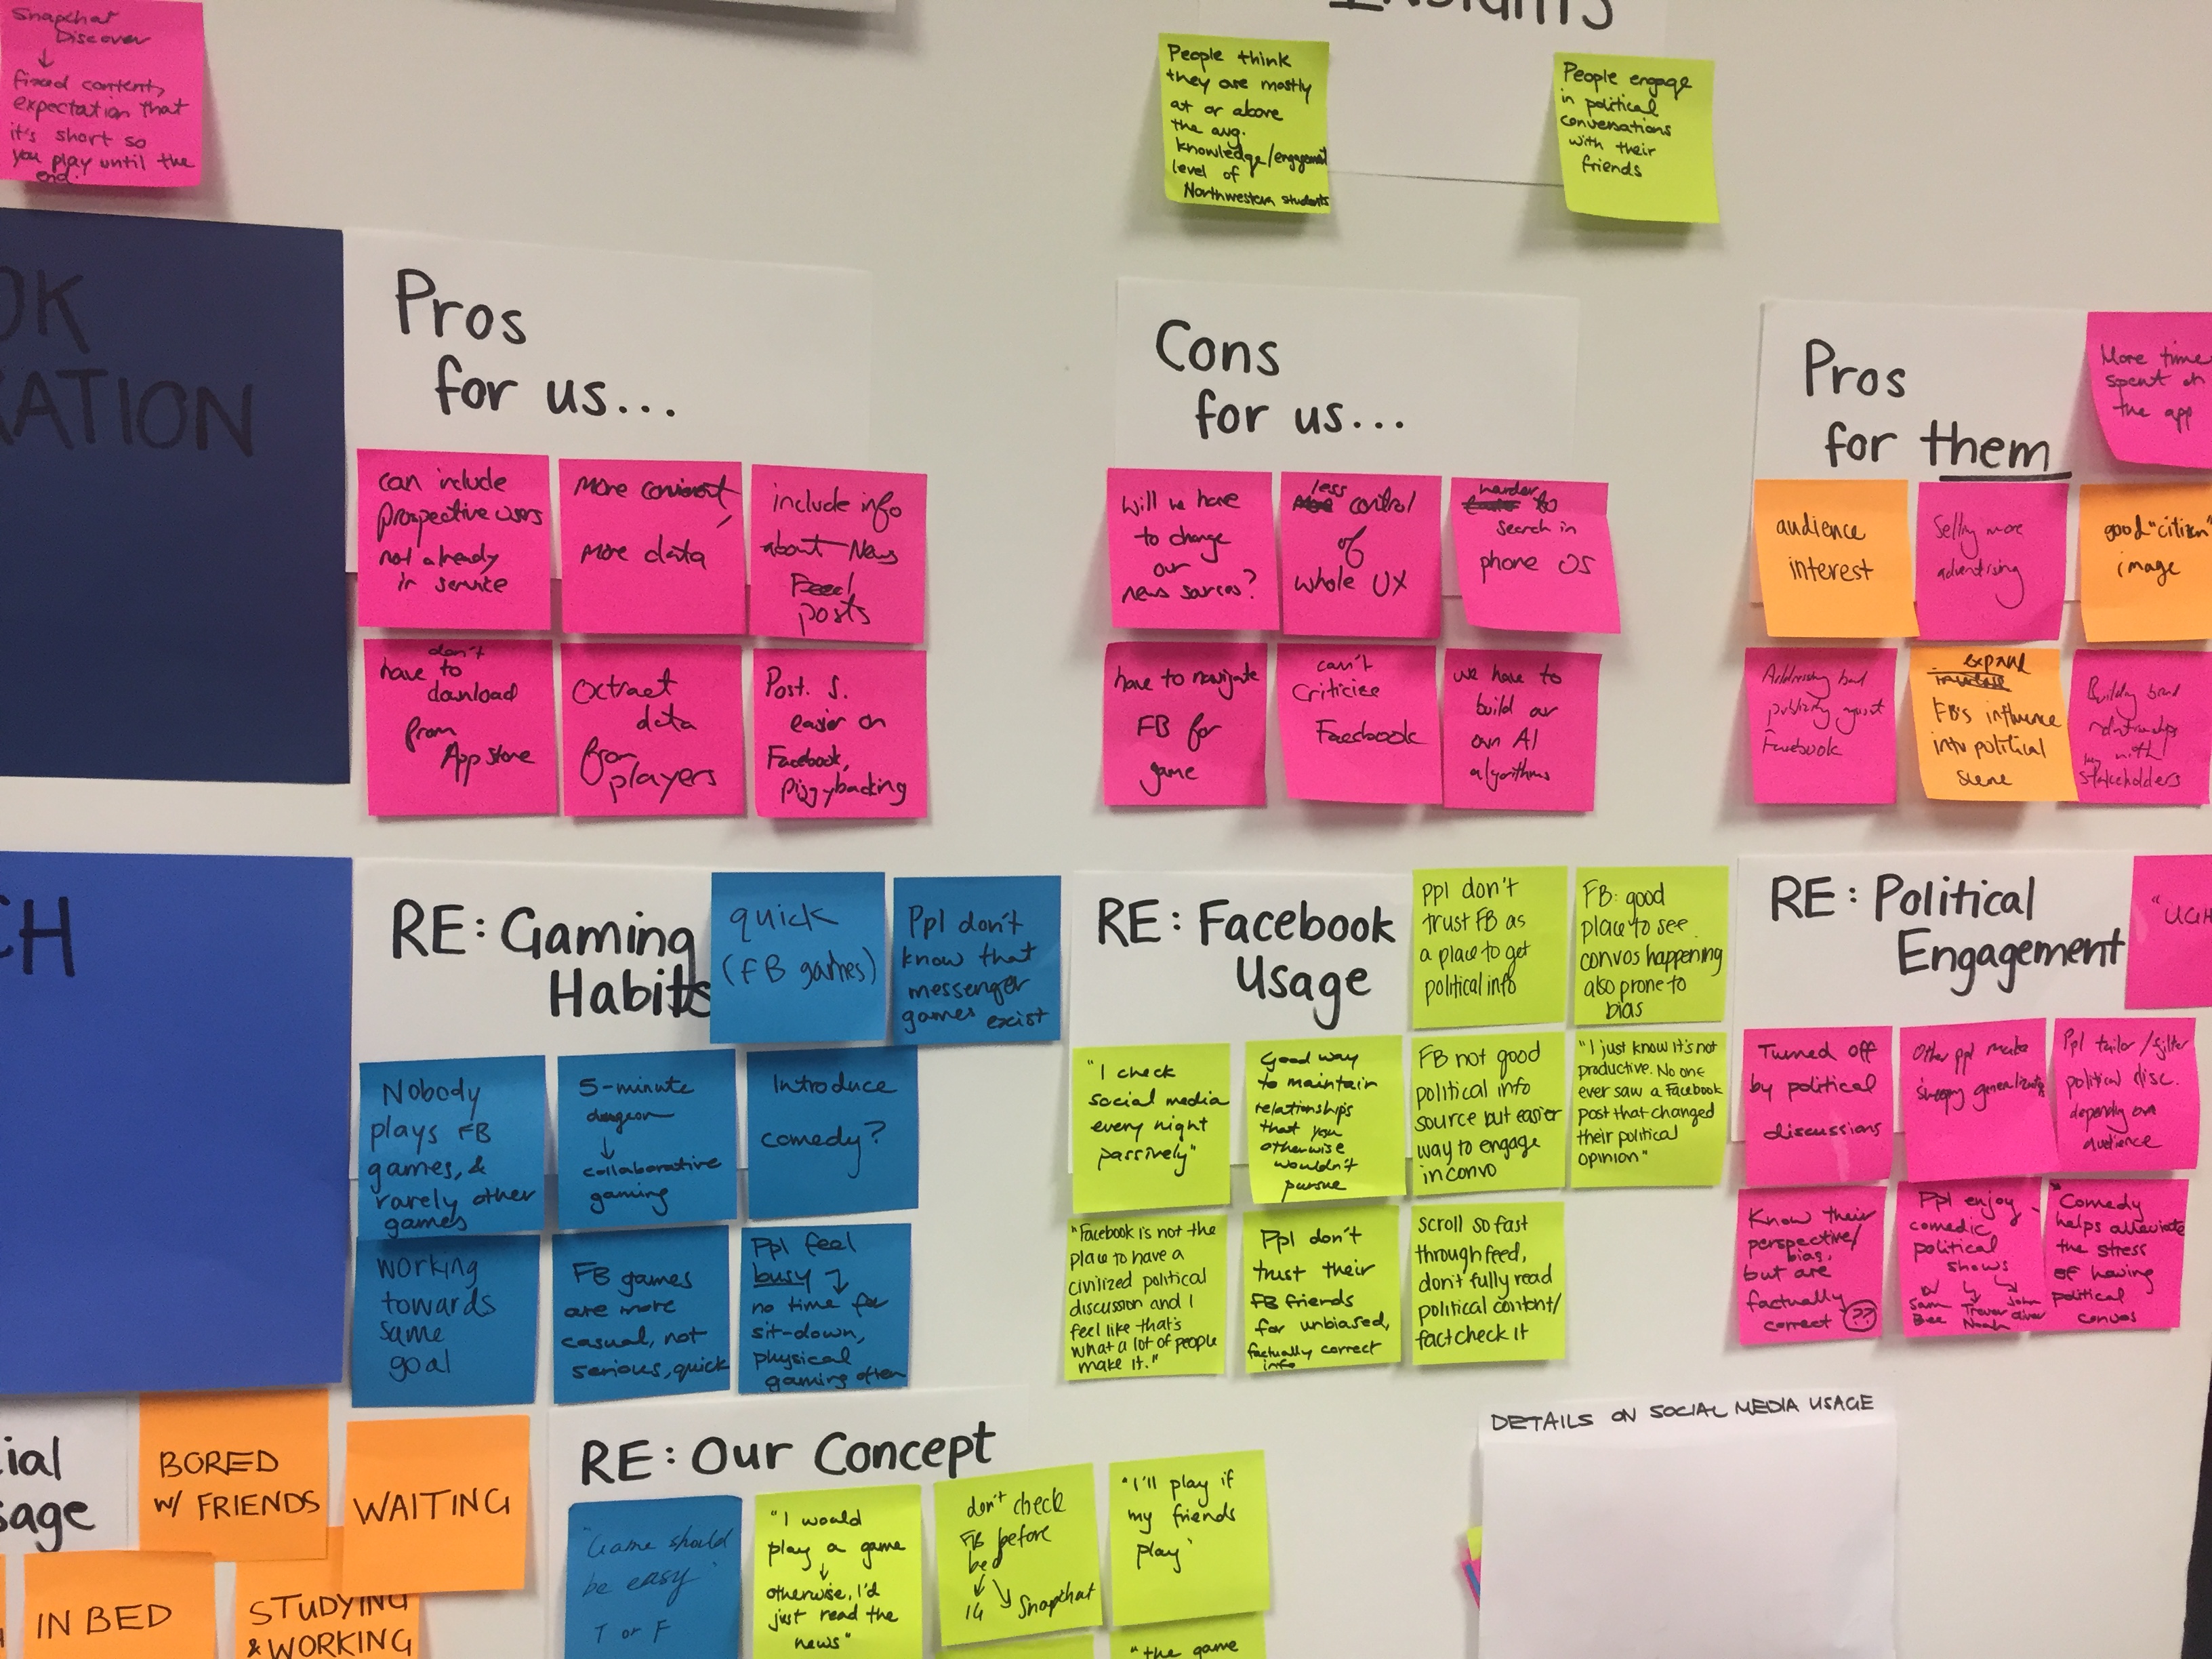 Snapchat
Discover
↓
fixed content,
expectation that
it's short so
you play until the
end.
INSIGHTS
People think
they are mostly
at or above
the avg.
knowledge/engagement
level of
Northwestern students
People engage
in political
conversations
with their
friends
OK
RATION
Pros
for us...
can include
prospective users
not already
in service
More
more data
include info
about News
Feed
posts
don't
have to
download
from
App store
data
from
players
Post. S.
easier on
Facebook,
piggybacking
Cons
for us...
Will we have
to change
our
news sources?
less
control
of
whole UX
harder
to
search in
phone OS
have to navigate
FB for
game
can't
Criticize
Facebook
we have to
build our
own AI
algorithms
Pros
for them
More time
spent on
the app
audience
interest
Selling more
advertising
good "citizen"
image
Addressing bad
publicity against
Facebook
expand
FB's influence
into political
scene
Building brand
relationships
with
key
stakeholders
CH
RE: Gaming
Habits
quick
(FB games)
Ppl don't
know that
messenger
games exist
Nobody
plays FB
games, &
rarely other
games
5-minute
dungeon
↓
collaborative
gaming
Introduce
comedy?
working
towards
same
goal
FB games
are more
casual, not
serious, quick
Ppl feel
busy
no time for
sit-down,
physical
gaming often
RE: Facebook
Usage
ppl don't
trust FB as
a place to get
political info
FB: good
place to see
convos happening
also prone to
bias
"I check
social media
every night
passively"
Good way
to maintain
relationships
that you
otherwise
wouldn't
pursue
FB not good
political info
source but easier
way to engage
in convo
"I just know it's not
productive. No one
ever saw a Facebook
post that changed
their political
opinion"
"Facebook is not the
place to have a
civilized political
discussion and I
feel like that's
what a lot of people
make it."
Ppl don't
trust their
FB friends
for unbiased,
factually correct
info
scroll so fast
through feed,
don't fully read
political content/
fact check it
RE: Political
Engagement
"UGH
Turned off
by political
discussions
Other ppl make
sweeping generalizations
Ppl tailor/filter
political disc.
depending on
audience
Know their
perspective/
bias,
but are
factually
correct ??
Ppl enjoy
comedic
political
shows
Sam
Bee
Trevor
Noah
John
Oliver
"Comedy
helps alleviate
the stress
of having
political
convos
ial
sage
BORED
w/ FRIENDS
WAITING
IN BED
STUDYING
& WORKING
RE: Our Concept
"Game should
be easy"
T or F
"I would
play a game
↓
otherwise, I'd
just read the
news"
don't check
FB before
bed
IG
Snapchat
"I'll play if
my friends
play"
"the game
DETAILS ON SOCIAL MEDIA USAGE